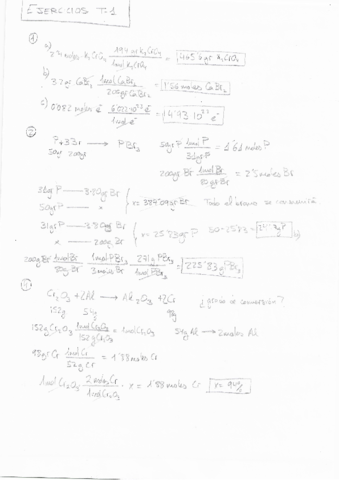 EJERCICIOS T.1
①
a) 2'4 moles K₂CrO₄ · 194 gr K₂CrO₄ / 1 mol K₂CrO₄ = 465'6 gr K₂CrO₄
b) gr CaBr₂ · 1 mol CaBr₂ / 200 gr CaBr₂ = 1'66 moles CaBr₂
c) 0'082 moles é · 6'022·10²³ é / 1 mol é = 4'93·10²² é
P + 3Br → PBr₃
50gr 200gr
50gr P · 1 mol P / 31gr P = 1'61 moles P
200gr Br · 1 mol Br / 80gr Br = 2'5 moles Br
31gr P — 3·80gr Br
50gr P — x
x = gr Br
Todo el bromo se
31gr P — 3·80gr Br
x — 200gr Br
x = 25'83gr P
200gr Br · 1 mol Br / 80gr Br · 1 mol PBr₃ / 3 moles Br · 271 g PBr₃ / 1 mol PBr₃ = 225'83 g PBr₃
Cr₂O₃ + 2Al → Al₂O₃ + 2Cr
¿grado de conversión?
152g 54g 98g
152g Cr₂O₃ · 1 mol Cr₂O₃ / 152g Cr₂O₃ = 1 mol Cr₂O₃
54g Al → 2 moles Al
98gr Cr · 1 mol Cr / 52g Cr = 1'88 moles Cr
1 mol Cr₂O₃ · 2 moles Cr / 1 mol Cr₂O₃ · x = 1'88 moles Cr